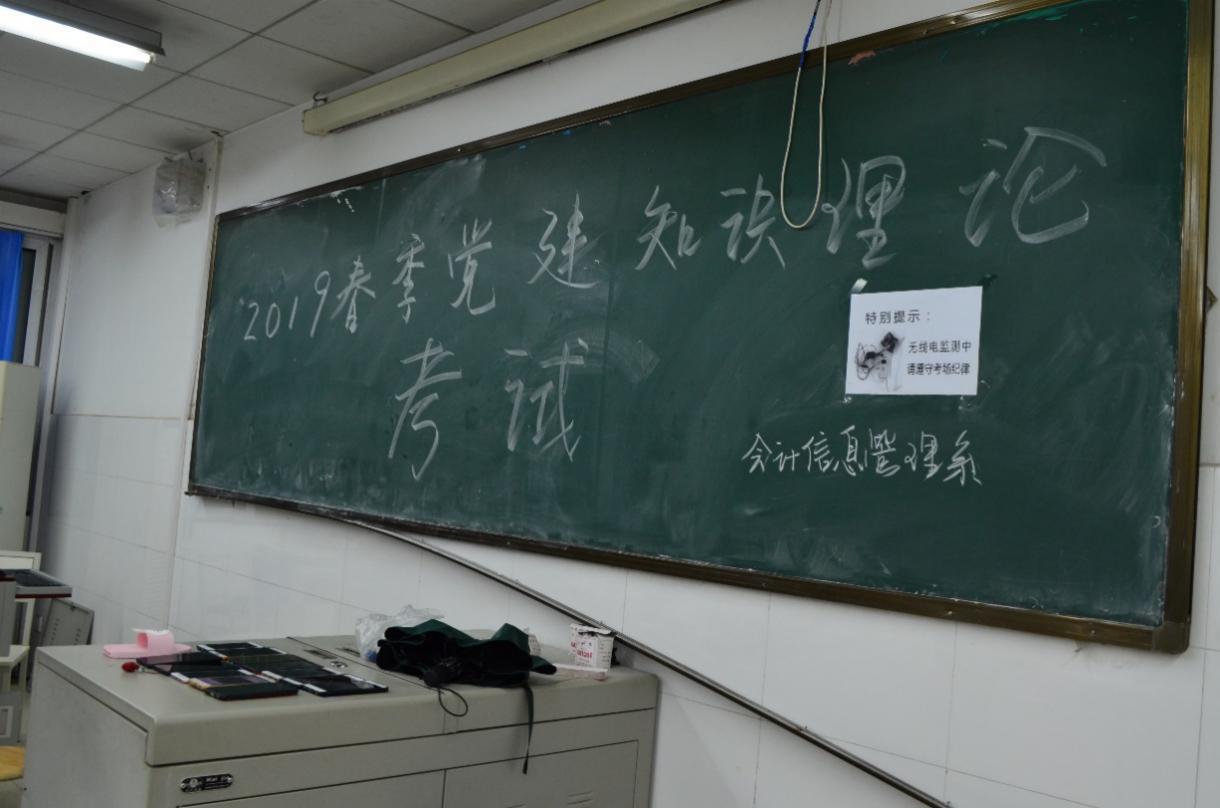 2019春季党建知识理论
考试
特别提示：
无线电监测中
请遵守考场纪律
会计信息管理系